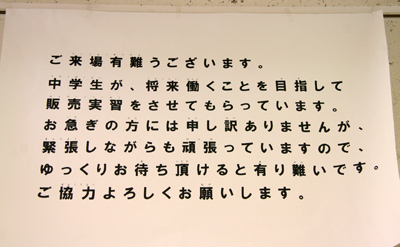 ご来場有難うございます。
中学生が、将来働くことを目指して
販売実習をさせてもらっています。
お急ぎの方には申し訳ありませんが、
緊張しながらも頑張っていますので、
ゆっくりお待ち頂けると有り難いです。
ご協力よろしくお願いします。